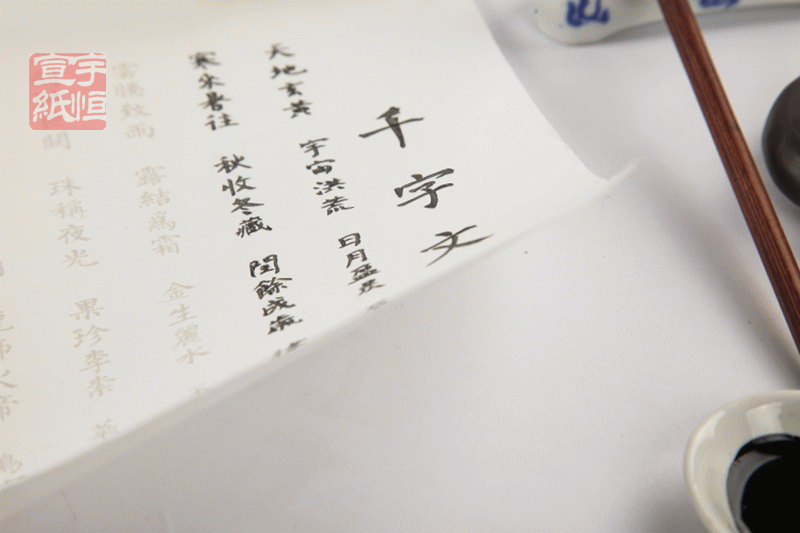 千字文
天地玄黃 宇宙洪荒 日月盈昃
寒來暑往 秋收冬藏 閏餘成歲 律
雲騰致雨 露結為霜 金生麗水 玉
闕 珠稱夜光 果珍李柰 菜
師火帝 鳥
宇恒
宣紙